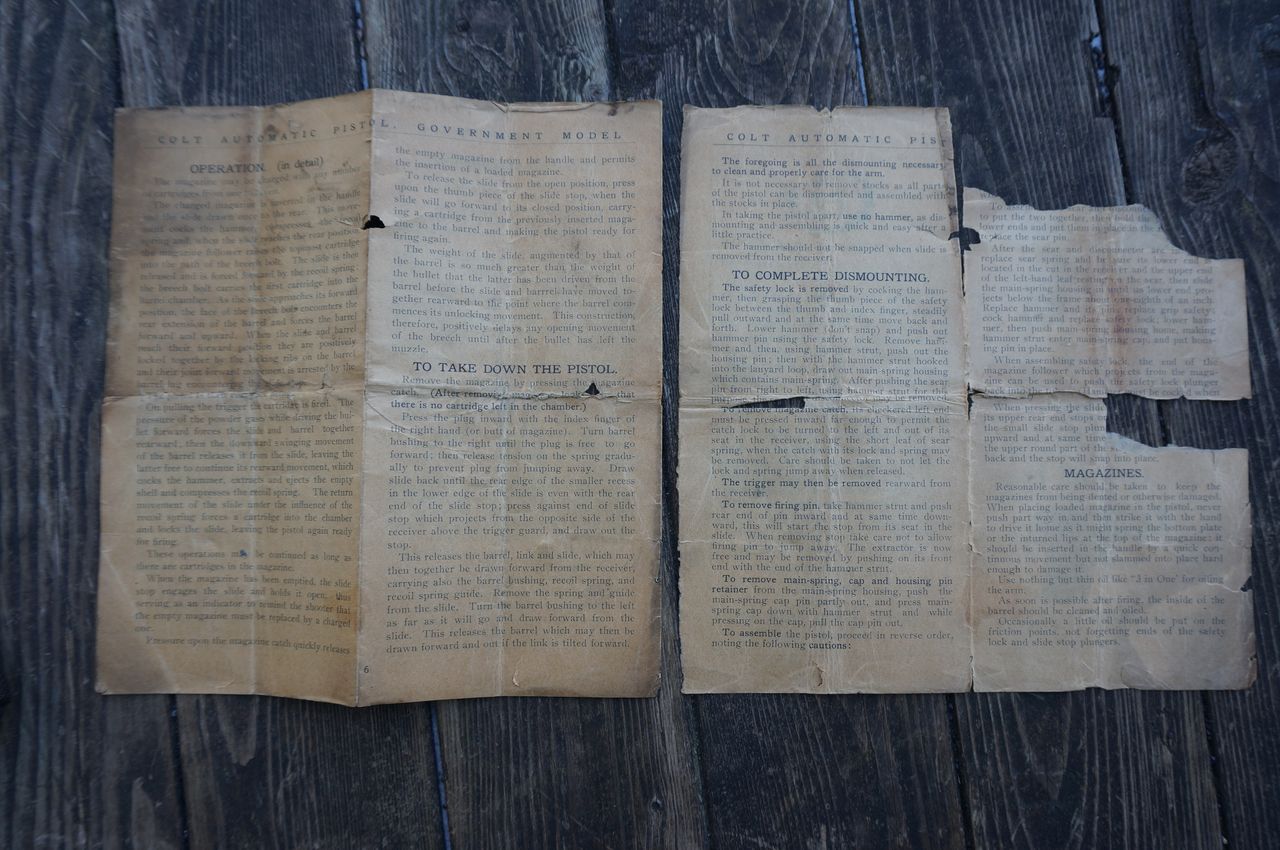 COLT AUTOMATIC PISTOL. GOVERNMENT MODEL
OPERATION. (in detail)
The magazine may be charged with any number
of cartridges from
The charged magazine is inserted in the handle
and the slide drawn once to the rear. This move-
ment cocks the hammer, compresses the recoil
spring and, when the slide reaches the rear position
the magazine follower raises the topmost cartridge
into the path of the breech bolt. The slide is then
released and is forced forward by the recoil spring;
the breech bolt carries the first cartridge into the
barrel chamber. As the slide approaches its forward
position, the face of the breech bolt encounters the
rear extension of the barrel and forces the barrel
forward and upward. When the slide and barrel
reach their forward position they are positively
locked together by the locking ribs on the barrel
and their joint forward movement is arrested by the
barrel lug
On pulling the trigger the cartridge is fired. The
pressure of the powder gases while driving the bul-
let forward forces the slide and barrel together
rearward; then the downward swinging movement
of the barrel releases it from the slide, leaving the
latter free to continue its rearward movement, which
cocks the hammer, extracts and ejects the empty
shell and compresses the recoil spring. The return
movement of the slide under the influence of the
recoil spring forces a cartridge into the chamber
and locks the slide, leaving the pistol again ready
for firing.
These operations may be continued as long as
there are cartridges in the magazine.
When the magazine has been emptied, the slide
stop engages the slide and holds it open, thus
serving as an indicator to remind the shooter that
the empty magazine must be replaced by a charged
one.
Pressure upon the magazine catch quickly releases
the empty magazine from the handle and permits
the insertion of a loaded magazine.
To release the slide from the open position, press
upon the thumb piece of the slide stop, when the
slide will go forward to its closed position, carry-
ing a cartridge from the previously inserted maga-
zine to the barrel and making the pistol ready for
firing again.
The weight of the slide, augmented by that of
the barrel is so much greater than the weight of
the bullet that the latter has been driven from the
barrel before the slide and barrel have moved to-
gether rearward to the point where the barrel com-
mences its unlocking movement. This construction,
therefore, positively delays any opening movement
of the breech until after the bullet has left the
muzzle.
TO TAKE DOWN THE PISTOL.
Remove the magazine by pressing the magazine
catch. (After removing that
there is no cartridge left in the chamber.)
Press the plug inward with the index finger of
the right hand (or butt of magazine). Turn barrel
bushing to the right until the plug is free to go
forward; then release tension on the spring gradu-
ally to prevent plug from jumping away. Draw
slide back until the rear edge of the smaller recess
in the lower edge of the slide is even with the rear
end of the slide stop; press against end of slide
stop which projects from the opposite side of the
receiver above the trigger guard, and draw out the
stop.
This releases the barrel, link and slide, which may
then together be drawn forward from the receiver,
carrying also the barrel bushing, recoil spring, and
recoil spring guide. Remove the spring and guide
from the slide. Turn the barrel bushing to the left
as far as it will go and draw forward from the
slide. This releases the barrel which may then be
drawn forward and out if the link is tilted forward.
6
COLT AUTOMATIC PIST
The foregoing is all the dismounting necessary
to clean and properly care for the arm.
It is not necessary to remove stocks as all parts
of the pistol can be dismounted and assembled with
the stocks in place.
In taking the pistol apart, use no hammer, as dis-
mounting and assembling is quick and easy after a
little practice.
The hammer should not be snapped when slide is
removed from the receiver.
TO COMPLETE DISMOUNTING.
The safety lock is removed by cocking the ham-
mer, then grasping the thumb piece of the safety
lock between the thumb and index finger, steadily
pull outward and at the same time move back and
forth. Lower hammer (don't snap) and push out
hammer pin using the safety lock. Remove ham-
mer and then, using hammer strut, push out the
housing pin; then with the hammer strut hooked
into the lanyard loop, draw out main-spring housing
which contains main-spring. After pushing the sear
pin from right to left, using hammer strut for this
purpose, the removed
To remove magazine catch, its checkered left end
must be pressed inward far enough to permit the
catch lock to be turned to the left and out of its
seat in the receiver, using the short leaf of sear
spring, when the catch with its lock and spring may
be removed. Care should be taken to not let the
lock and spring jump away when released.
The trigger may then be removed rearward from
the receiver.
To remove firing pin, take hammer strut and push
rear end of pin inward and at same time down-
ward, this will start the stop from its seat in the
slide. When removing stop take care not to allow
firing pin to jump away. The extractor is now
free and may be removed by pushing on its front
end with the end of the hammer strut.
To remove main-spring, cap and housing pin
retainer from the main-spring housing, push the
main-spring cap pin partly out, and press main-
spring cap down with hammer strut and while
pressing on the cap, pull the cap pin out.
To assemble the pistol, proceed in reverse order,
noting the following cautions:
to put the two together, then hold the
lower ends and put them in place in the
replace the sear pin.
After the sear and disconnector are
replace sear spring and be sure its lower
located in the cut in the receiver and the upper end
of the left-hand leaf resting on the sear, then slide
the main-spring housing in until its lower end pro-
jects below the frame about one-eighth of an inch.
Replace hammer and its pin, replace grip safety;
cock hammer and replace safety lock; lower ham-
mer, then push main-spring housing home, making
hammer strut enter main-spring cap, and put hous-
ing pin in place.
When assembling safety lock, the end of the
magazine follower which projects from the maga-
zine can be used to push safety lock plunger
be cocked when
When pressing the slide
its upper rear end
the small slide stop
upward and at same time
the upper round part of the
back and the stop will snap into place.
MAGAZINES.
Reasonable care should be taken to keep the
magazines from being dented or otherwise damaged.
When placing loaded magazine in the pistol, never
push part way in and then strike it with the hand
to drive it home as it might spring the bottom plate
or the inturned lips at the top of the magazine; it
should be inserted in the handle by a quick con-
tinuous movement but not slammed into place hard
enough to damage it.
Use nothing but thin oil like "3 in One" for oiling
the arm.
As soon as possible after firing, the inside of the
barrel should be cleaned and oiled.
Occasionally a little oil should be put on the
friction points, not forgetting ends of the safety
lock and slide stop plungers.